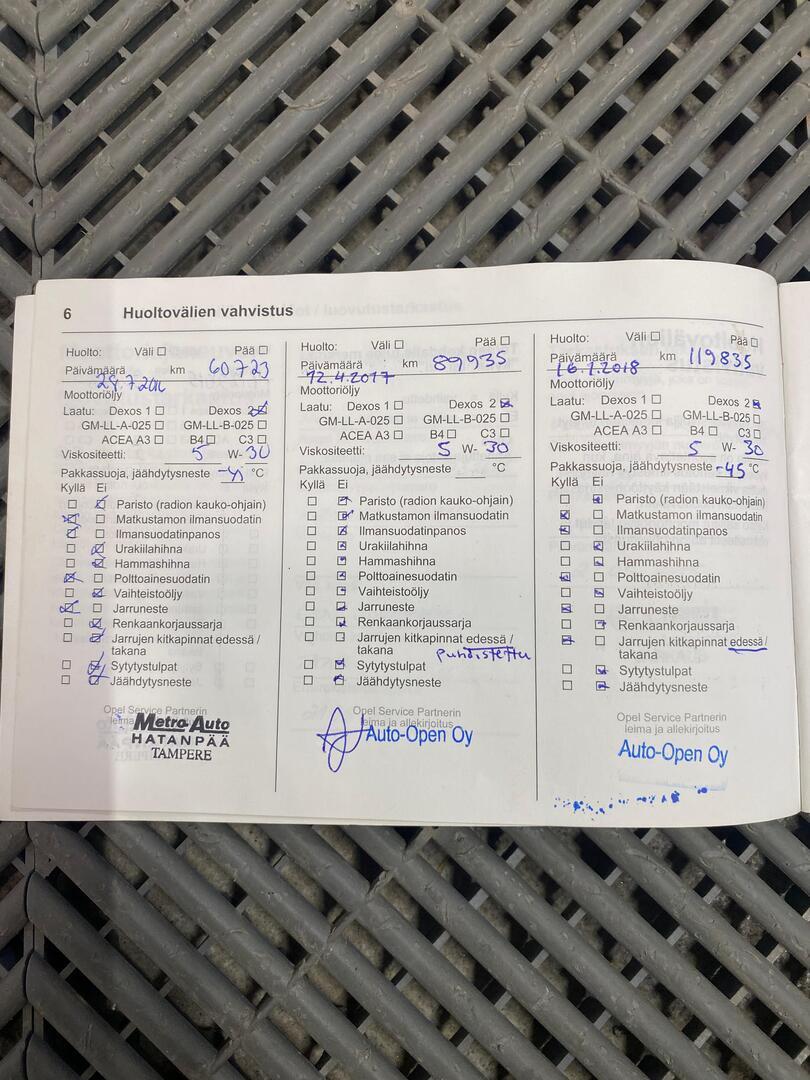 6 Huoltovälien vahvistus
Huolto: Väli ☐ Pää ☐
Päivämäärä km 60723
Moottoriöljy
Laatu: Dexos 1 ☐ Dexos 2 ☒
GM-LL-A-025 ☐ GM-LL-B-025 ☐
ACEA A3 ☐ B4 ☐ C3 ☐
Viskositeetti: 5 W- 30
Pakkassuoja, jäähdytysneste °C
Kyllä Ei
☐ ☒ Paristo (radion kauko-ohjain)
☒ ☐ Matkustamon ilmansuodatin
☒ ☐ Ilmansuodatinpanos
☐ ☒ Urakiilahihna
☐ ☒ Hammashihna
☒ ☐ Polttoainesuodatin
☐ ☒ Vaihteistoöljy
☒ ☐ Jarruneste
☐ ☒ Renkaankorjaussarja
☐ ☒ Jarrujen kitkapinnat edessä /
takana
☐ ☒ Sytytystulpat
☐ ☒ Jäähdytysneste
Opel Service Partnerin
leima ja allekirjoitus
Metro Auto
HATANPÄÄ
TAMPERE
Huolto: Väli ☐ Pää ☐
Päivämäärä km 89935
12.4.2017
Moottoriöljy
Laatu: Dexos 1 ☐ Dexos 2 ☒
GM-LL-A-025 ☐ GM-LL-B-025 ☐
ACEA A3 ☐ B4 ☐ C3 ☐
Viskositeetti: 5 W- 30
Pakkassuoja, jäähdytysneste °C
Kyllä Ei
☐ ☒ Paristo (radion kauko-ohjain)
☐ ☒ Matkustamon ilmansuodatin
☐ ☒ Ilmansuodatinpanos
☐ ☒ Urakiilahihna
☐ ☒ Hammashihna
☐ ☒ Polttoainesuodatin
☐ ☒ Vaihteistoöljy
☐ ☒ Jarruneste
☐ ☒ Renkaankorjaussarja
☐ ☐ Jarrujen kitkapinnat edessä /
takana puhdistettu
☐ ☒ Sytytystulpat
☐ ☒ Jäähdytysneste
Opel Service Partnerin
leima ja allekirjoitus
Auto-Open Oy
Huolto: Väli ☐ Pää ☐
Päivämäärä km 119835
16.1.2018
Moottoriöljy
Laatu: Dexos 1 ☐ Dexos 2 ☒
GM-LL-A-025 ☐ GM-LL-B-025 ☐
ACEA A3 ☐ B4 ☐ C3 ☐
Viskositeetti: 5 W- 30
Pakkassuoja, jäähdytysneste -45 °C
Kyllä Ei
☐ ☒ Paristo (radion kauko-ohjain)
☒ ☐ Matkustamon ilmansuodatin
☒ ☐ Ilmansuodatinpanos
☐ ☒ Urakiilahihna
☐ ☒ Hammashihna
☒ ☐ Polttoainesuodatin
☐ ☒ Vaihteistoöljy
☒ ☐ Jarruneste
☐ ☒ Renkaankorjaussarja
☒ ☐ Jarrujen kitkapinnat edessä /
takana
☐ ☒ Sytytystulpat
☐ ☒ Jäähdytysneste
Opel Service Partnerin
leima ja allekirjoitus
Auto-Open Oy